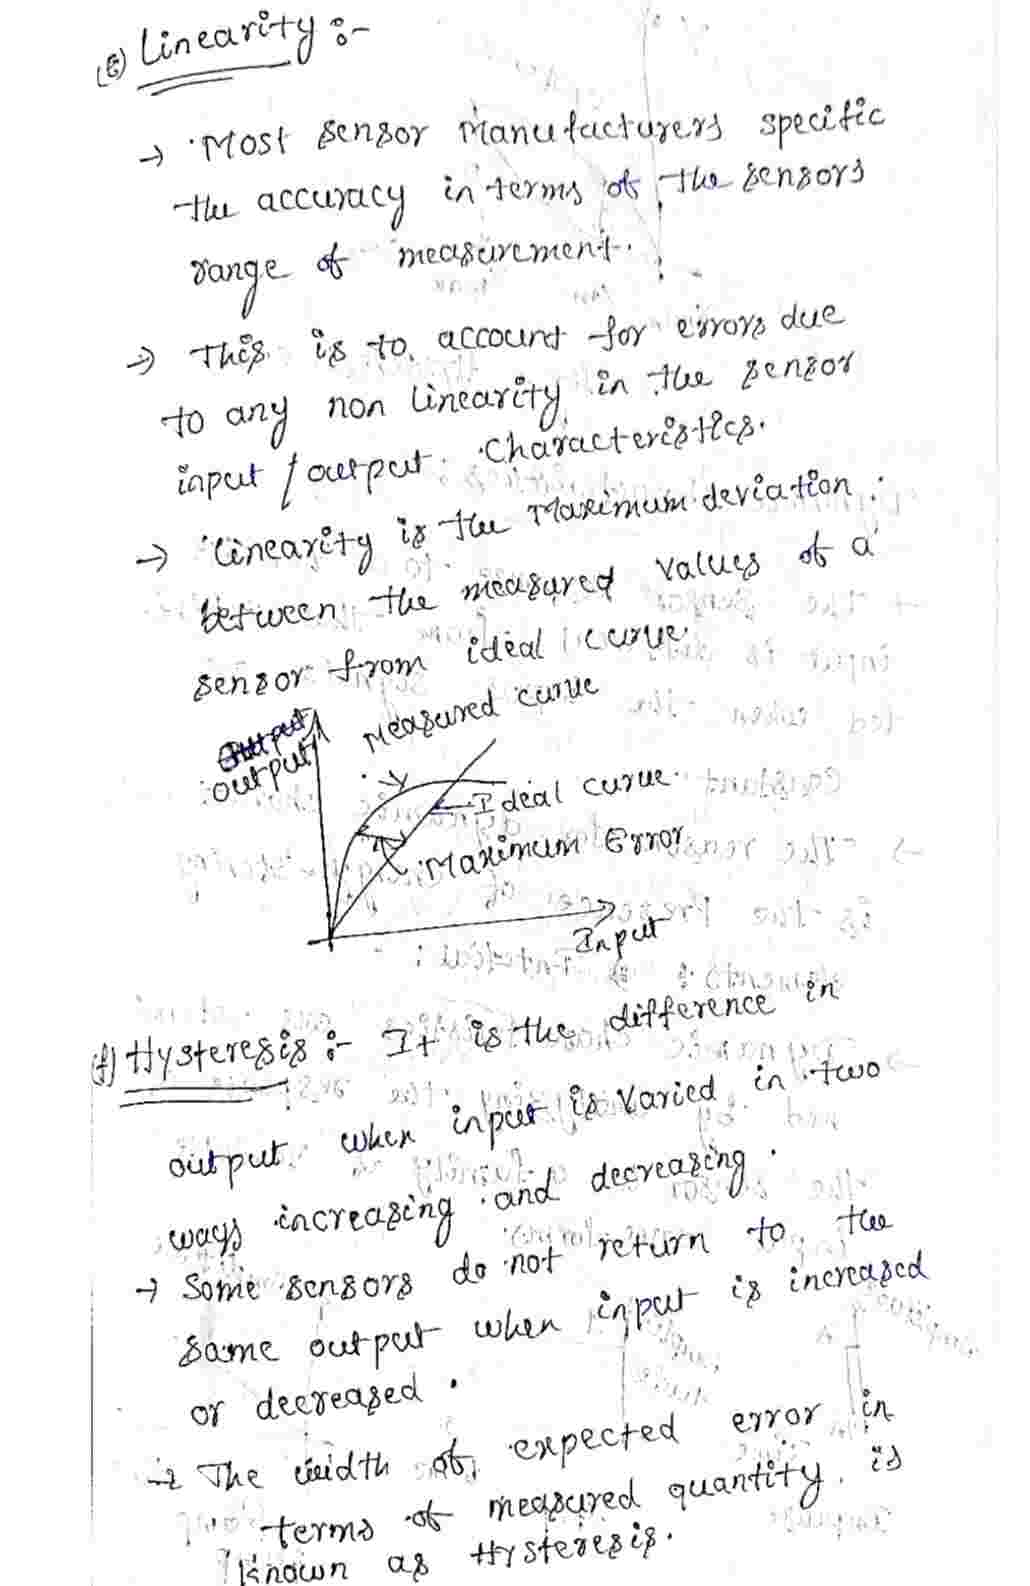 (E) Linearity :-
→ Most sensor Manufacturers specific
the accuracy in terms of the sensors
range of measurement.
→ This is to account for errors due
to any non linearity in the sensor
input / output characteristics.
→ Linearity is the Maximum deviation
between the measured values of a
sensor from ideal curve.
output
Measured curve
Ideal curve
Maximum Error
Input
(f) Hysteresis :- It is the difference in
output when input is varied in two
ways increasing and decreasing.
→ Some sensors do not return to the
same output when input is increased
or decreased.
→ The width of expected error in
terms of measured quantity is
known as Hysteresis.